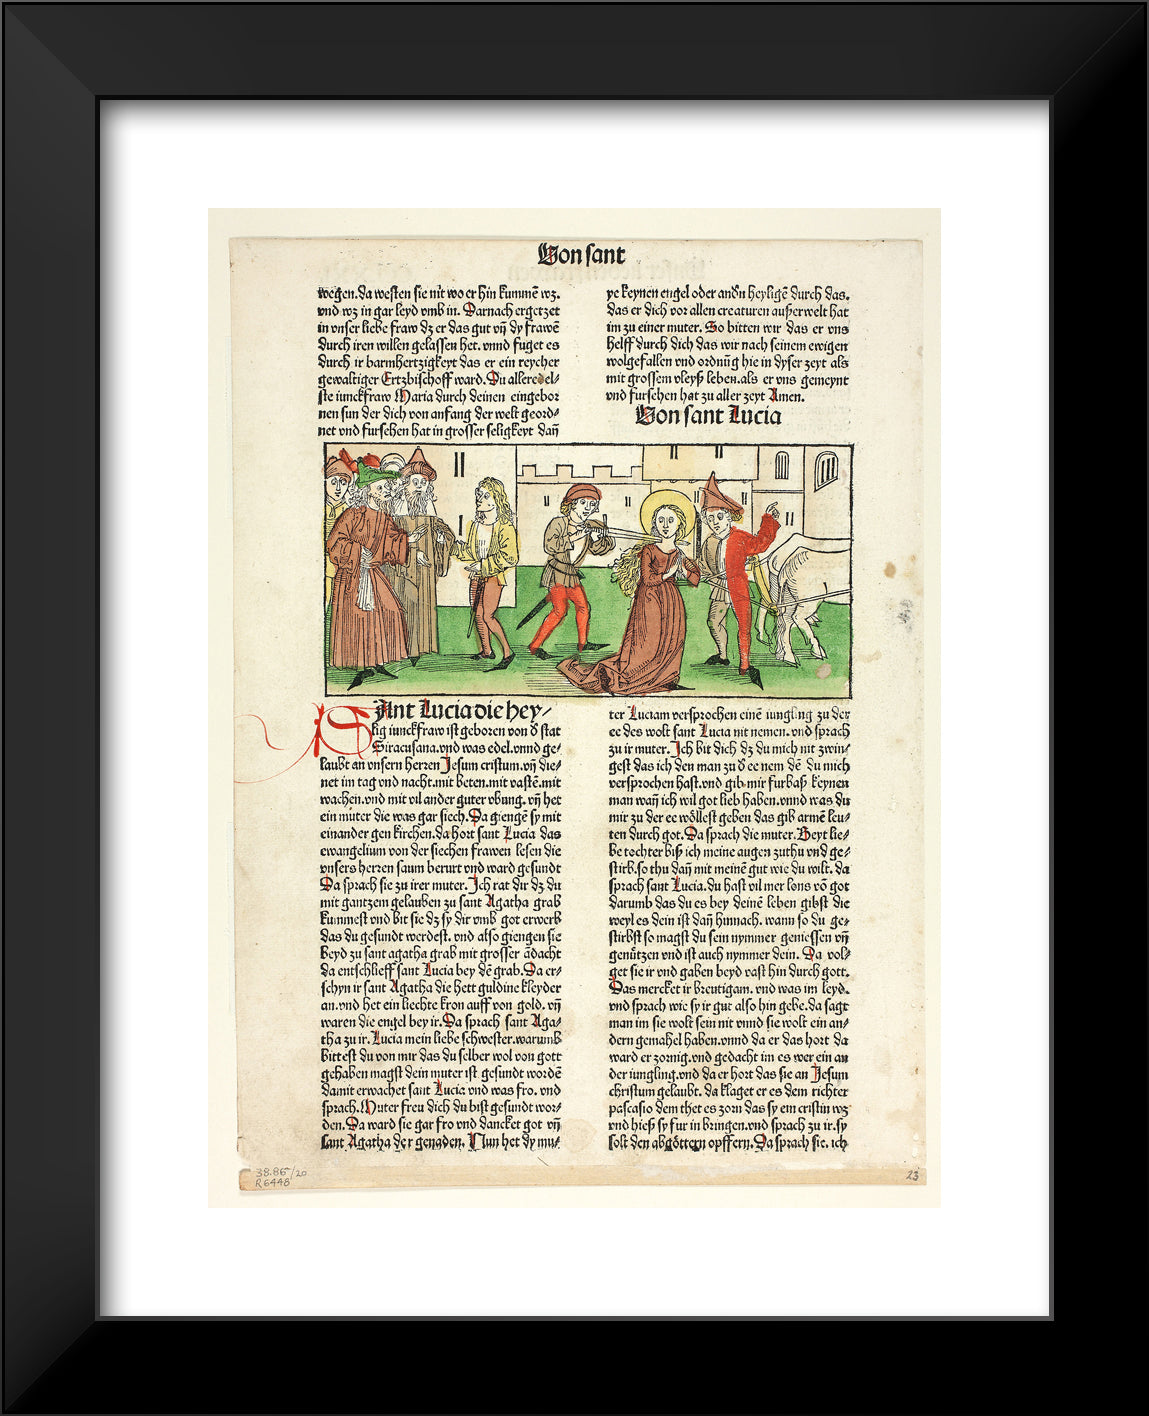 Von sant
wegen.da westen sie nit wo er hin kummen wz.
vnd wz in gar leyd vmb in. Darnach ergetzet
in vnser liebe fraw dz er das gut vñ dy frawē
durch iren willen gelassen het. vnnd fuget es
durch ir barmhertzigkeyt das er ein reycher
gewaltiger Ertzbischoff ward. Du alleredel⸗
ste iunckfraw Maria durch deinen eingebor
nen sun der dich von anfang der welt geord⸗
net vnd fursehen hat in grosser seligkeyt dañ
ye keynen engel oder andn heyligē durch das.
das er dich vor allen creaturen ausserwelt hat
im zu einer muter. So bitten wir das er vns
helff durch dich das wir nach seinem ewigen
wolgefallen vnd ordnūg hie in dyser zeyt als
mit grossem vleyß leben.als er vns gemeynt
vnd fursehen hat zu aller zeyt Amen.
Von sant Lucia
SAnt Lucia die hey⸗
lig iunckfraw ist geboren von d stat
Siracusana.vnd was edel.vnnd ge⸗
laubt an vnsern herren Jesum cristum.vñ die⸗
net im tag vnd nacht.mit beten.mit vastē.mit
wachen.vnd mit vil ander guter vbung. vñ het
ein muter die was gar siech. Da giengē sy mit
einander gen kirchen.da hort sant Lucia das
ewangelium von der siechen frawen lesen die
vnsers herren saum berurt vnd ward gesundt
Da sprach sie zu irer muter. Ich rat dir dz du
mit gantzem gelauben zu sant Agatha grab
kummest vnd bit sie dz sy dir vmb got erwerb
das du gesundt werdest. vnd also giengen sie
beyd zu sant agatha grab mit grosser ādacht
da entschlieff sant Lucia bey dē grab. Da er⸗
schyn ir sant Agatha die hett guldine kleyder
an.vnd het ein liechte kron auff von gold. vñ
waren die engel bey ir. Da sprach sant Aga⸗
tha zu ir. Lucia mein liebe schwester.warumb
bittest du von mir das du selber wol von gott
gehaben magst dein muter ist gesundt wordē
damit erwachet sant Lucia vnd was fro. vnd
sprach. Muter freu dich du bist gesundt wor⸗
den. Da ward sie gar fro vnd dancket got vñ
sant Agatha der genaden. Nun het dy mu⸗
ter Luciam versprochen einē iungling zu der
ee des wolt sant Lucia nit nemen. vnd sprach
zu ir muter. Ich bit dich dz du mich nit zwin⸗
gest das ich den man zu d ee nem dē du mich
versprochen hast.vnd gib mir furbaß keynen
man wañ ich wil got lieb haben.vnnd was du
mir zu der ee wöllest geben das gib armē leu⸗
ten durch got. Da sprach die muter. Beyt lie⸗
be tochter biß ich meine augen zuthu vnd ge⸗
stirb.so thu dañ mit meinē gut wie du wilt. da
sprach sant Lucia.du hast vil mer lons vō got
darumb das du es bey deinē leben gibst die
weyl es dein ist dañ hinnach. wann so du ge⸗
stirbst so magst du sein nymmer geniessen vñ
genützen vnd ist auch nymmer dein. Da vol⸗
get sie ir vnd gaben beyd vast hin durch gott.
Das mercket ir breutigam. vnd was im leyd.
vnd sprach wie sy ir gut also hin gebe.da sagt
man im sie wolt sein nit vnnd sie wolt ein an⸗
dern gemahel haben.vnnd da er das hort da
ward er zornig.vnd gedacht im es wer ein an
der iungling.vnd da er hort das sie an Jesum
christum gelaubt. da klaget er es dem richter
pascasio dem thet es zorn das sy ein cristin wz
vnd hieß sy fur in bringen.vnd sprach zu ir.sy
solt den abgöttern opffern. Da sprach sie. ich
38.86/20
R6448
23